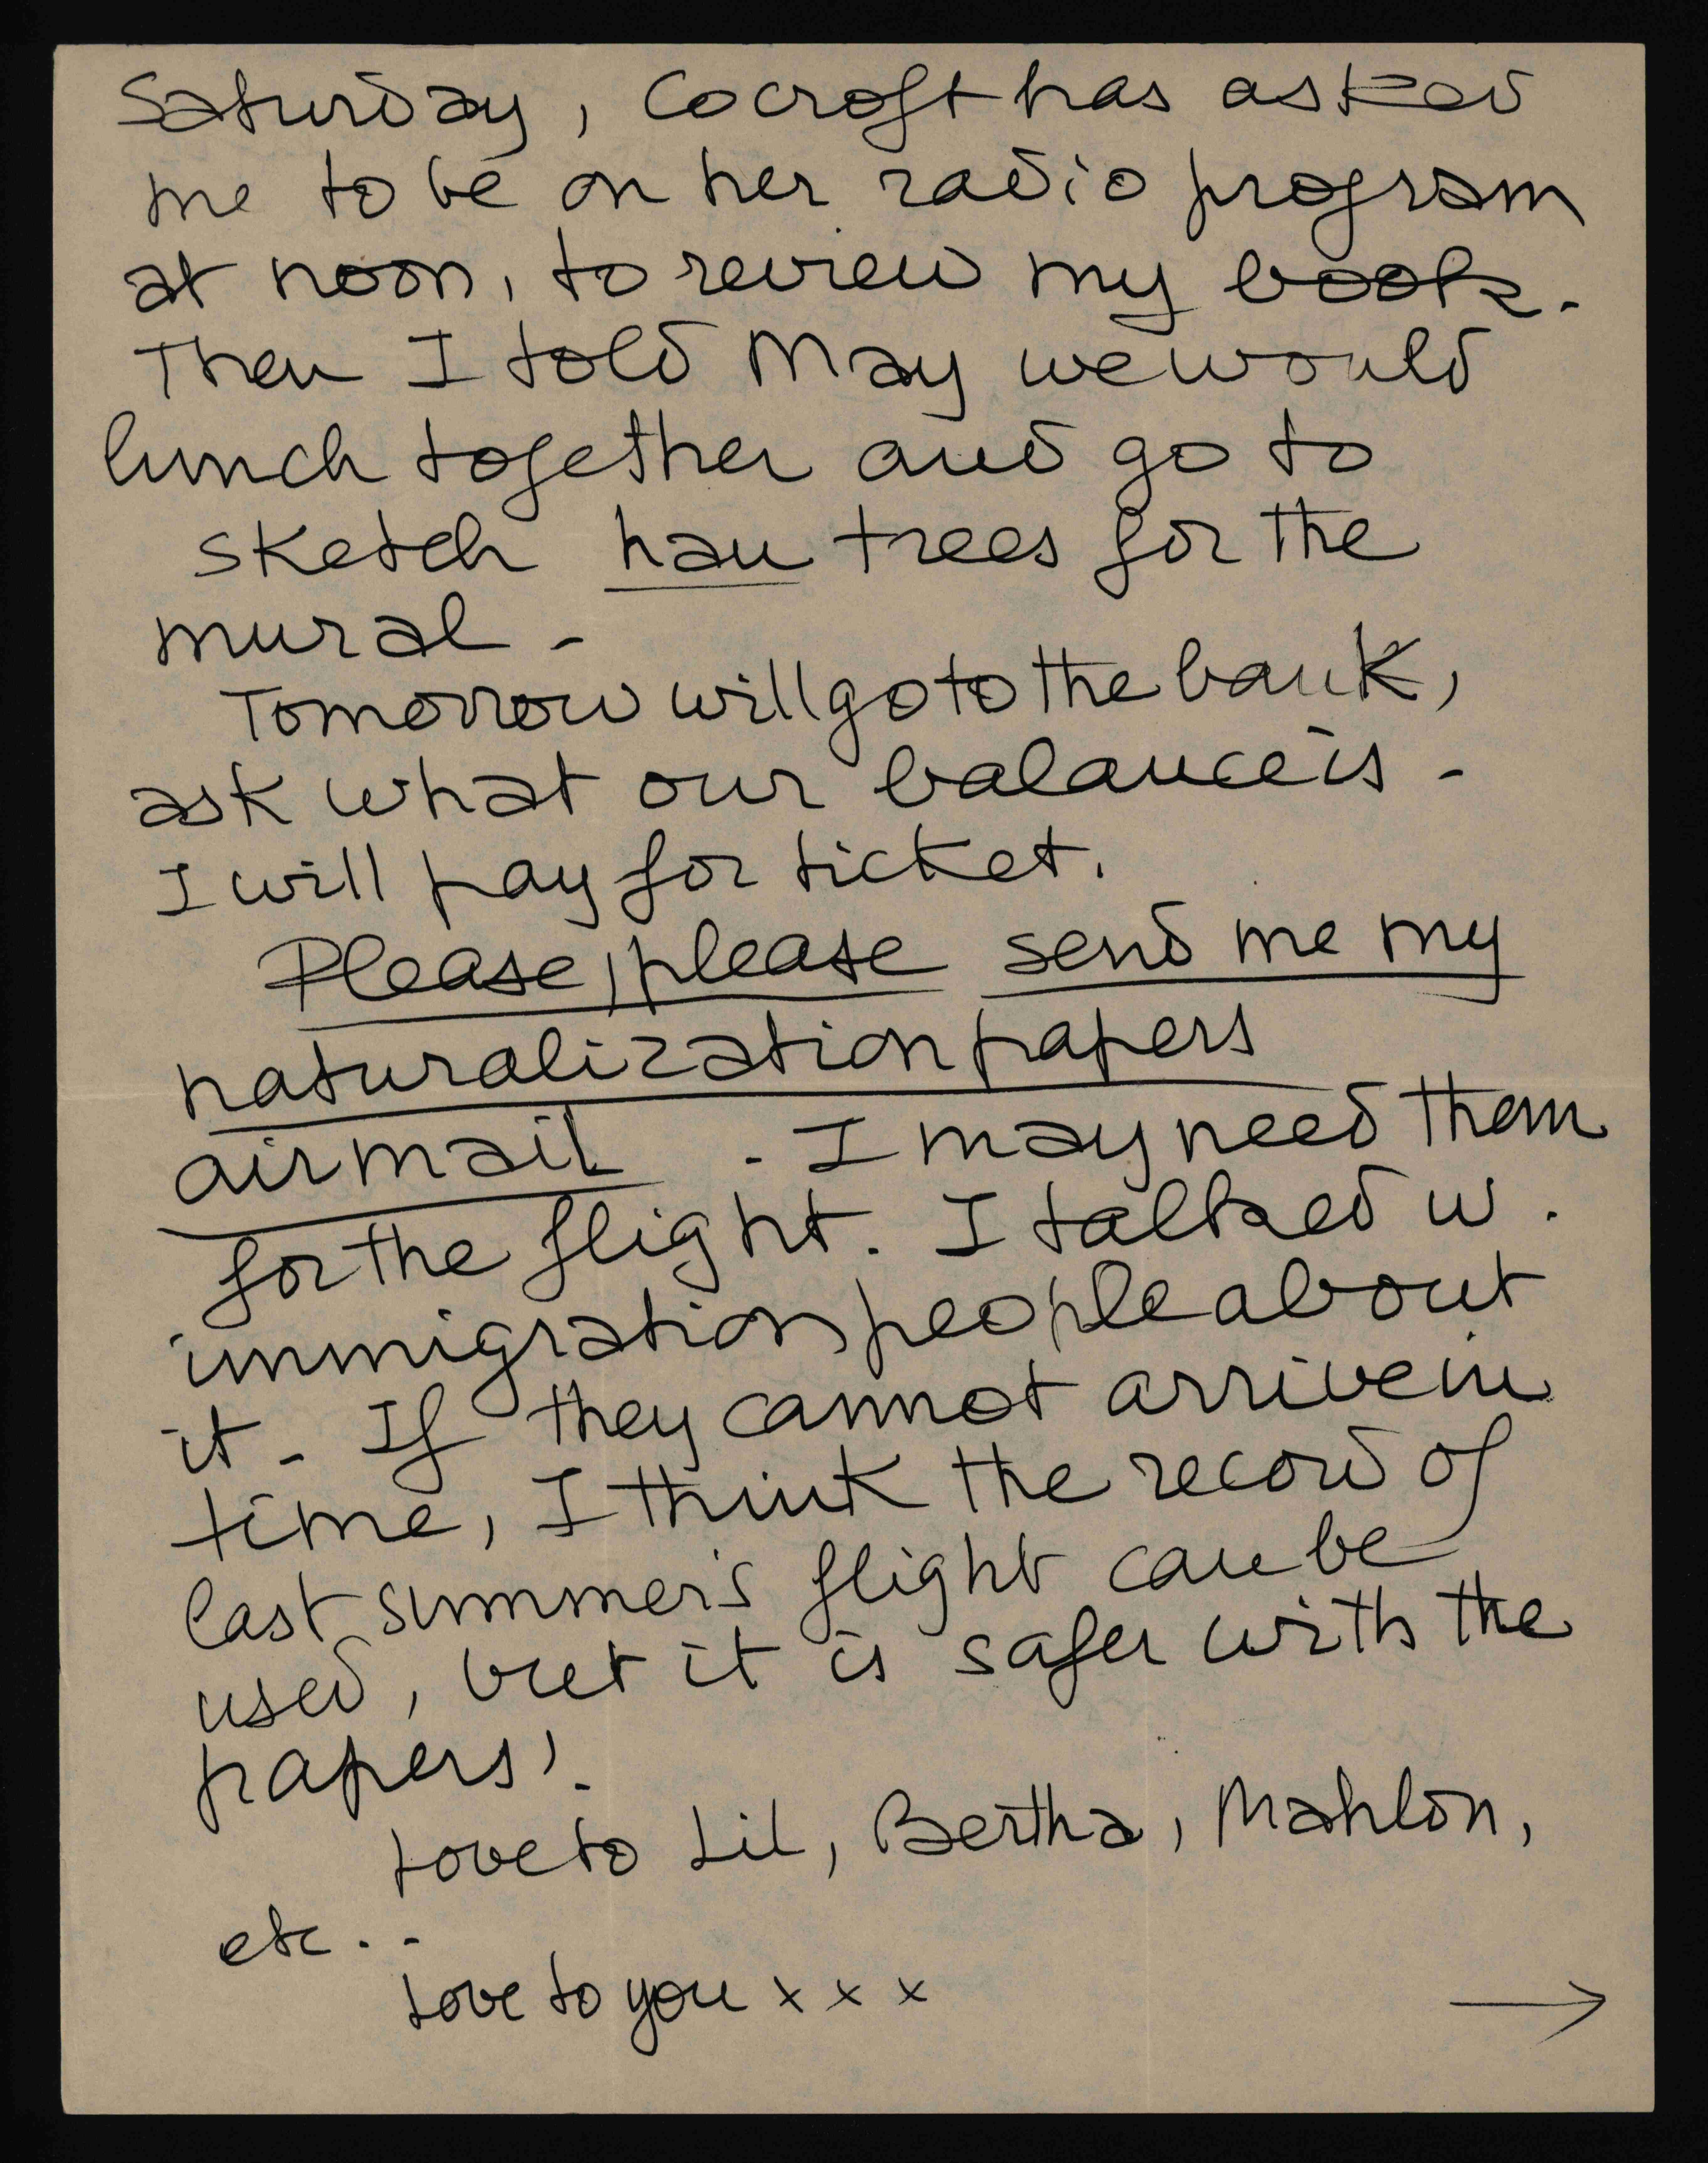 Saturday, Cocroft has asked
me to be on her radio program
at noon, to review my book.
Then I told May we would
lunch together and go to
sketch hau trees for the
mural -
Tomorrow will go to the bank,
ask what our balance is -
I will pay for ticket.
Please, please send me my
naturalization papers
airmail - I may need them
for the flight. I talked w.
immigration people about
it - If they cannot arrive in
time, I think the record of
last summer's flight can be
used, but it is safer with the
papers!
Love to Lil, Bertha, Mahlon,
etc..
Love to you x x x
→